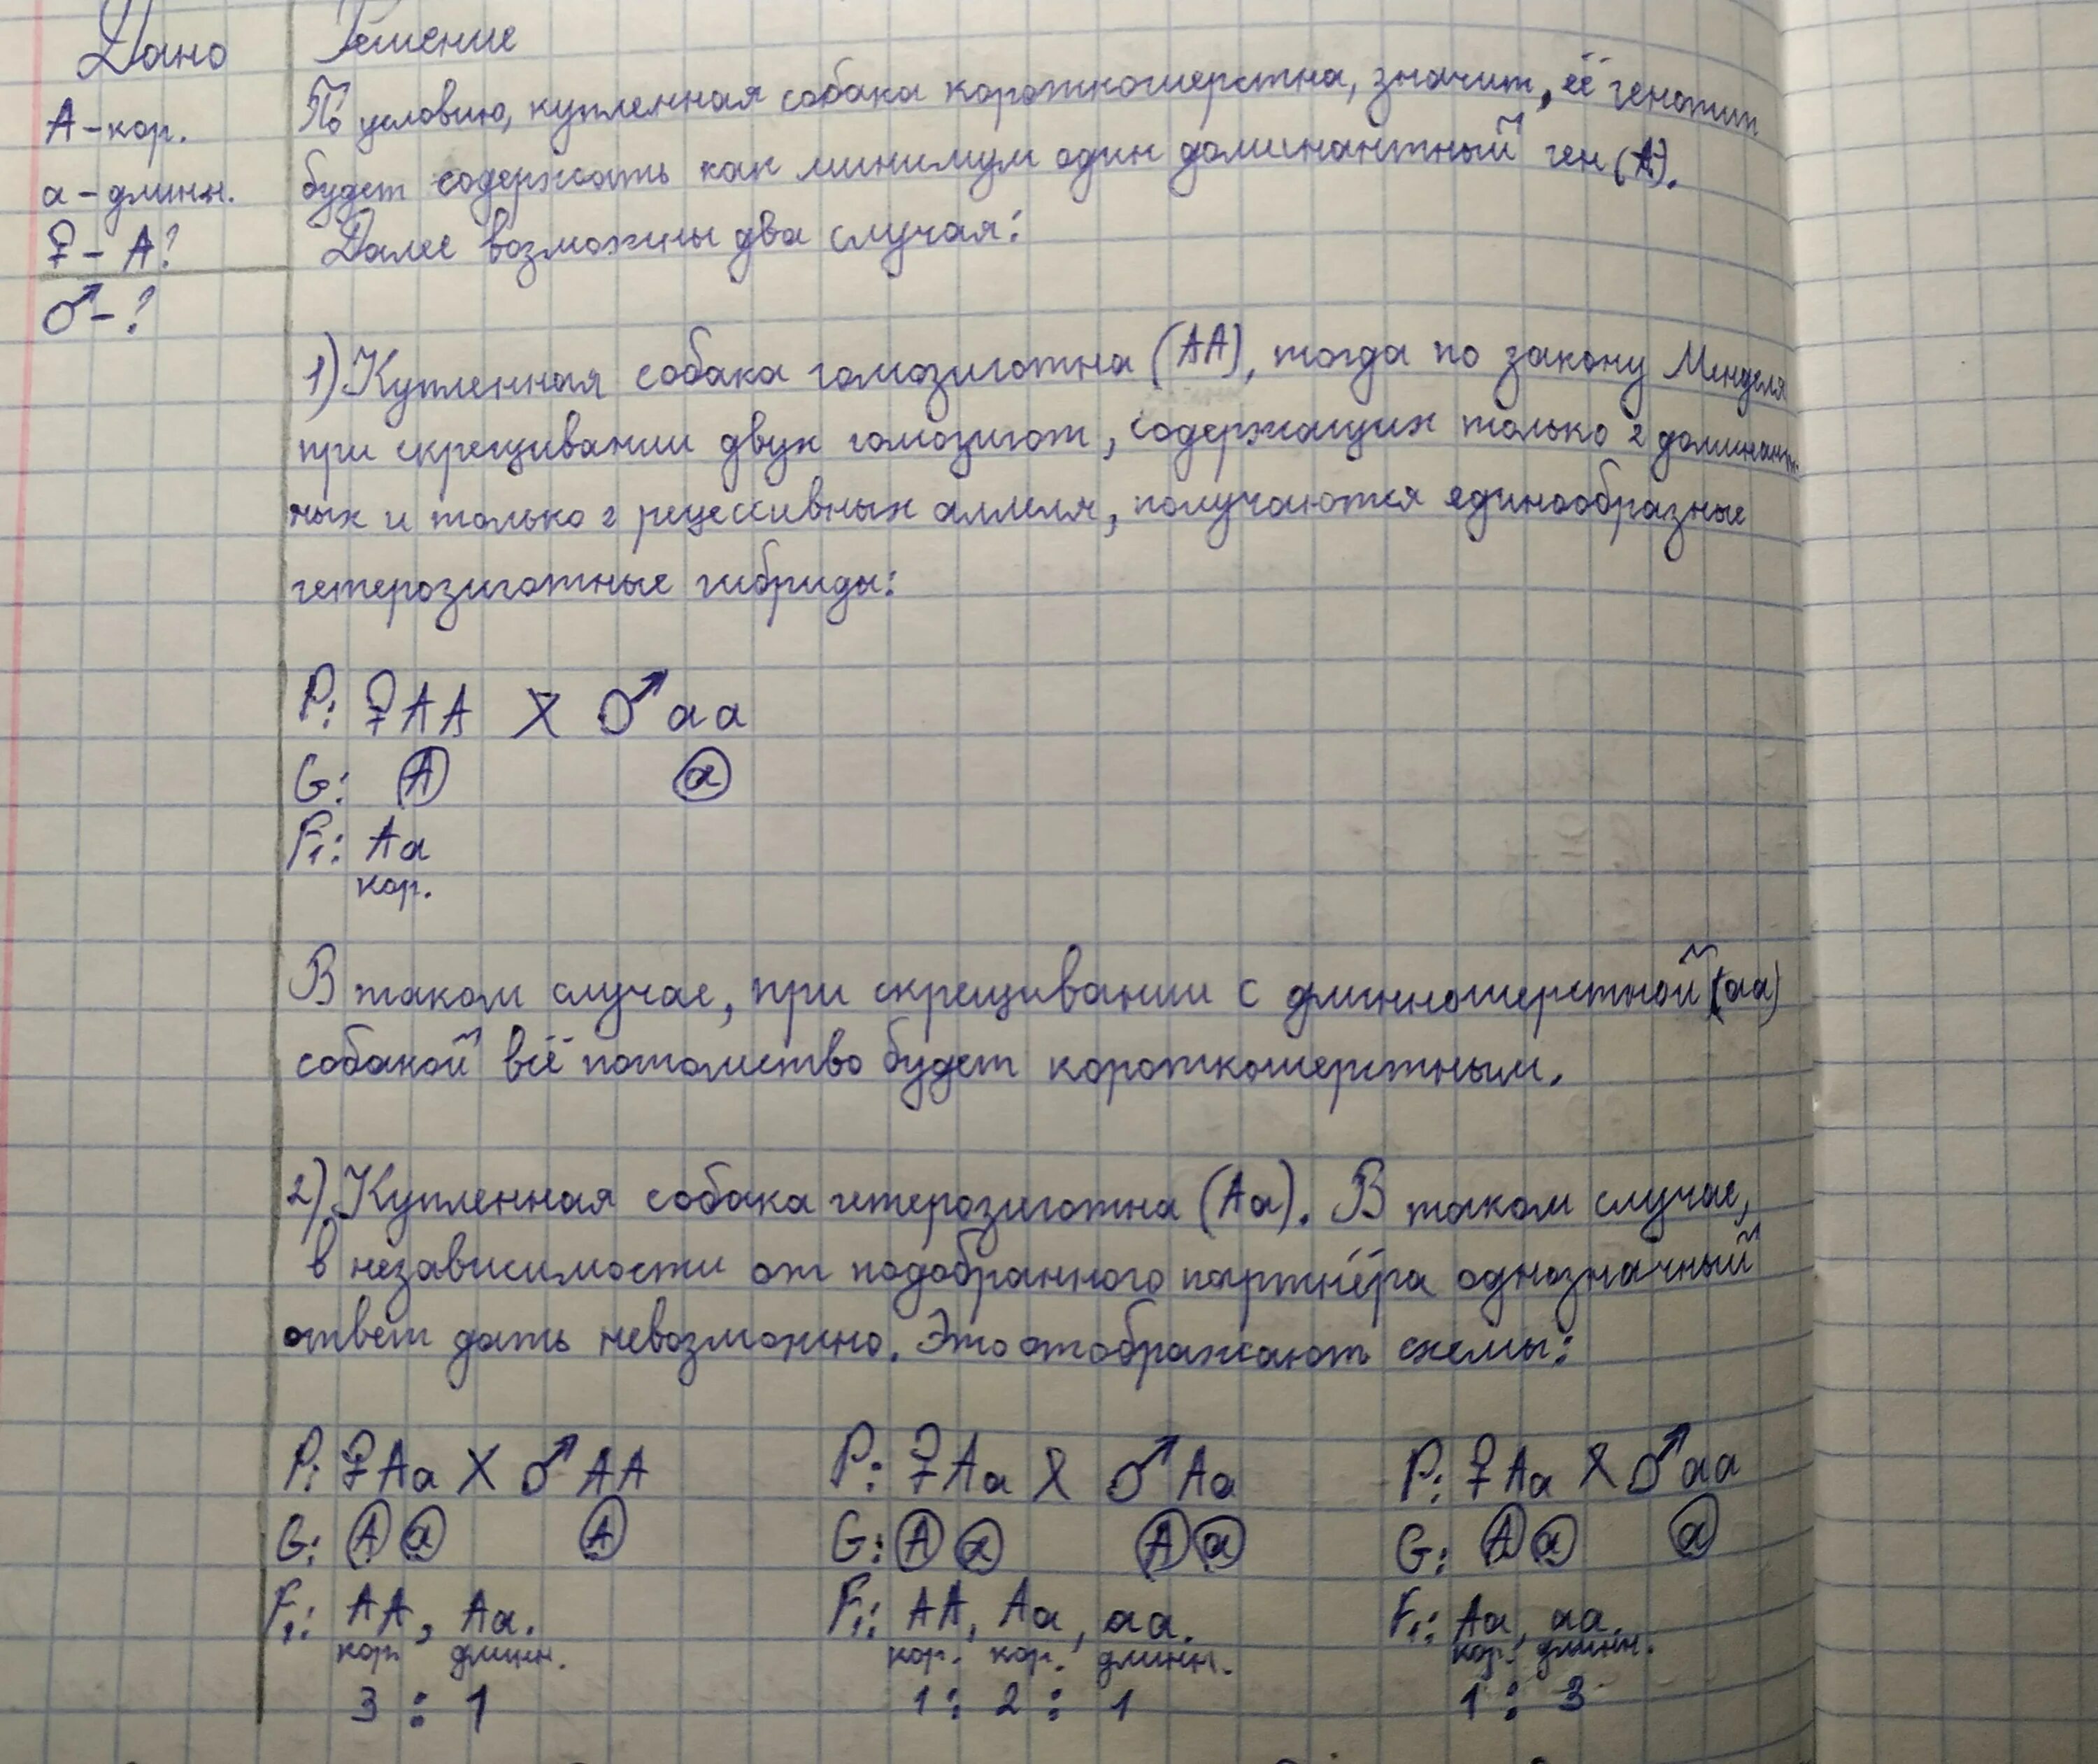 Дано
А-кор.
а-длинн.
♀ - А?
♂ - ?
Решение
По условию, купленная собака короткошерстна, значит, её генотип
будет содержать как минимум один доминантный ген (А).
Далее возможны два случая:
1) Купленная собака гомозиготна (АА), тогда по закону Менделя
при скрещивании двух гомозигот, содержащих только 2 доминант-
ных и только 2 рецессивных аллеля, получаются единообразные
гетерозиготные гибриды:
P: ♀ АА X ♂ аа
G: А а
F₁: Аа
кор.
В таком случае, при скрещивании с длинношерстной (аа)
собакой всё потомство будет короткошерстным.
2) Купленная собака гетерозиготна (Аа). В таком случае,
в независимости от подобранного партнёра однозначный
ответ дать невозможно. Это отображают схемы:
P: ♀ Аа X ♂ АА
G: А а А
F₁: АА, Аа.
кор. длинн.
3 : 1
P: ♀ Аа X ♂ Аа
G: А а А а
F₁: АА, Аа, аа.
кор. кор. длинн.
1 : 2 : 1
P: ♀ Аа X ♂ аа
G: А а а
F₁: Аа, аа.
кор. длинн.
1 : 3